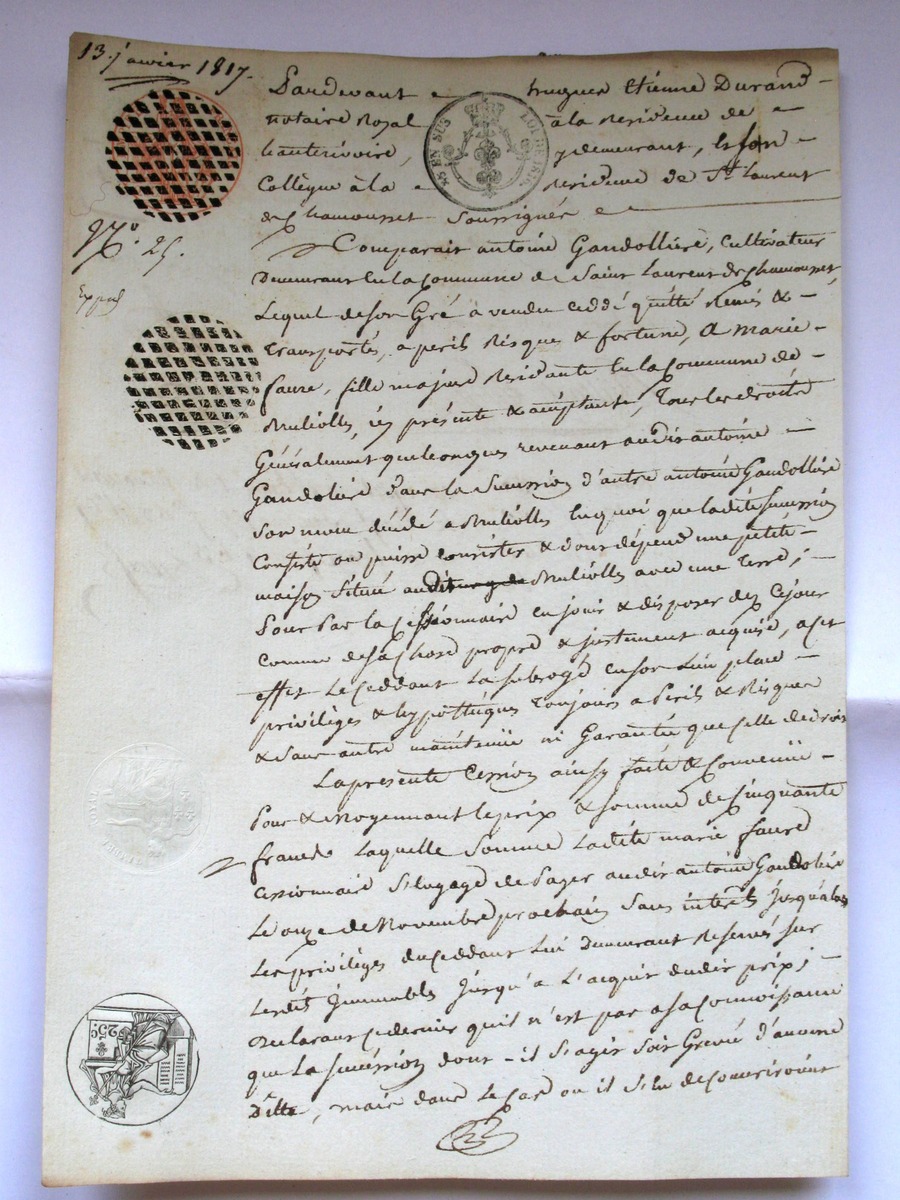 13. janvier 1817.
Pardevant hugues Etienne Durand
notaire Royal à la Residence de
hauterivoire, y demeurant, & son
Collègue à la Residence de St. Laurent
de Chamousset soussignés
25 EN SUS LOI DE 1816
No. 25.
Comparait antoine Gandollière, Cultivateur
Demeurant en la Commune de Saint Laurent de Chamousset,
Lequel de son Gré à vendu céddé quitté Remis &
transportés, a perils Risques & fortune, A Marie
faure, fille majeure Residante en la Commune de
Brulioles, icy présente & acceptante, Tous les droits
Généralement quelconques revenant audit antoine
Gandolière dans la Succession d'autre antoine Gandollière
Son décédé a Brulioles en quoi que ladite succession
Consiste ou puisse consister & dont dépend une petite
maison Située au Brulioles avec une Terre;
Pour Par la Cessionnaire en jouir & disposer dez Cejour
Comme de sa Chose propre & justement acquise, a cet
effet Le Ceddant La subrogé en son Lieu place
privilèges & hypottèques Toujours a Perils & Risques
& Sans autre maintenüe ni Garantie que celle de droit
La présente Cession ainsy faite & Convenüe
Pour & Moyennant le prix & somme de Cinquante
francs Laquelle Somme Ladite marie faure
Cessionnaire S'engage de Payer audit antoine Gandolière
Le onze de Novembre prochain Sans intérêts jusqu'alors
Les privilèges du Ceddant Lui Demeurant Reservés sur
Lesdits Immeubles Jusqu'a L'acquit dudit prix;
Declarant ce dernier qu'il n'est pas a sa Connoissance
que La succession dont il S'agit Soit Grevée d'aucune
Dette, mais dans Le Cas ou il S'en decouvriroient
25c